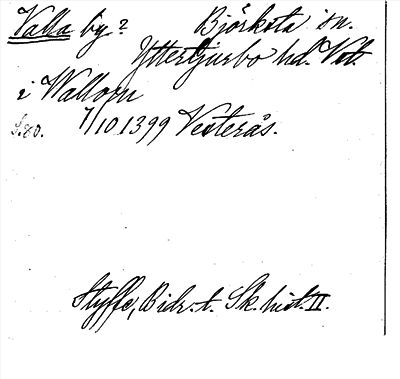 Valla by? Björksta sn.
Yttertjurbo hd. Vstl.
i Wallom
S. 80. 7/10 1399 Vesterås.
Styffe, Bidr. t. Sk. hist. II.